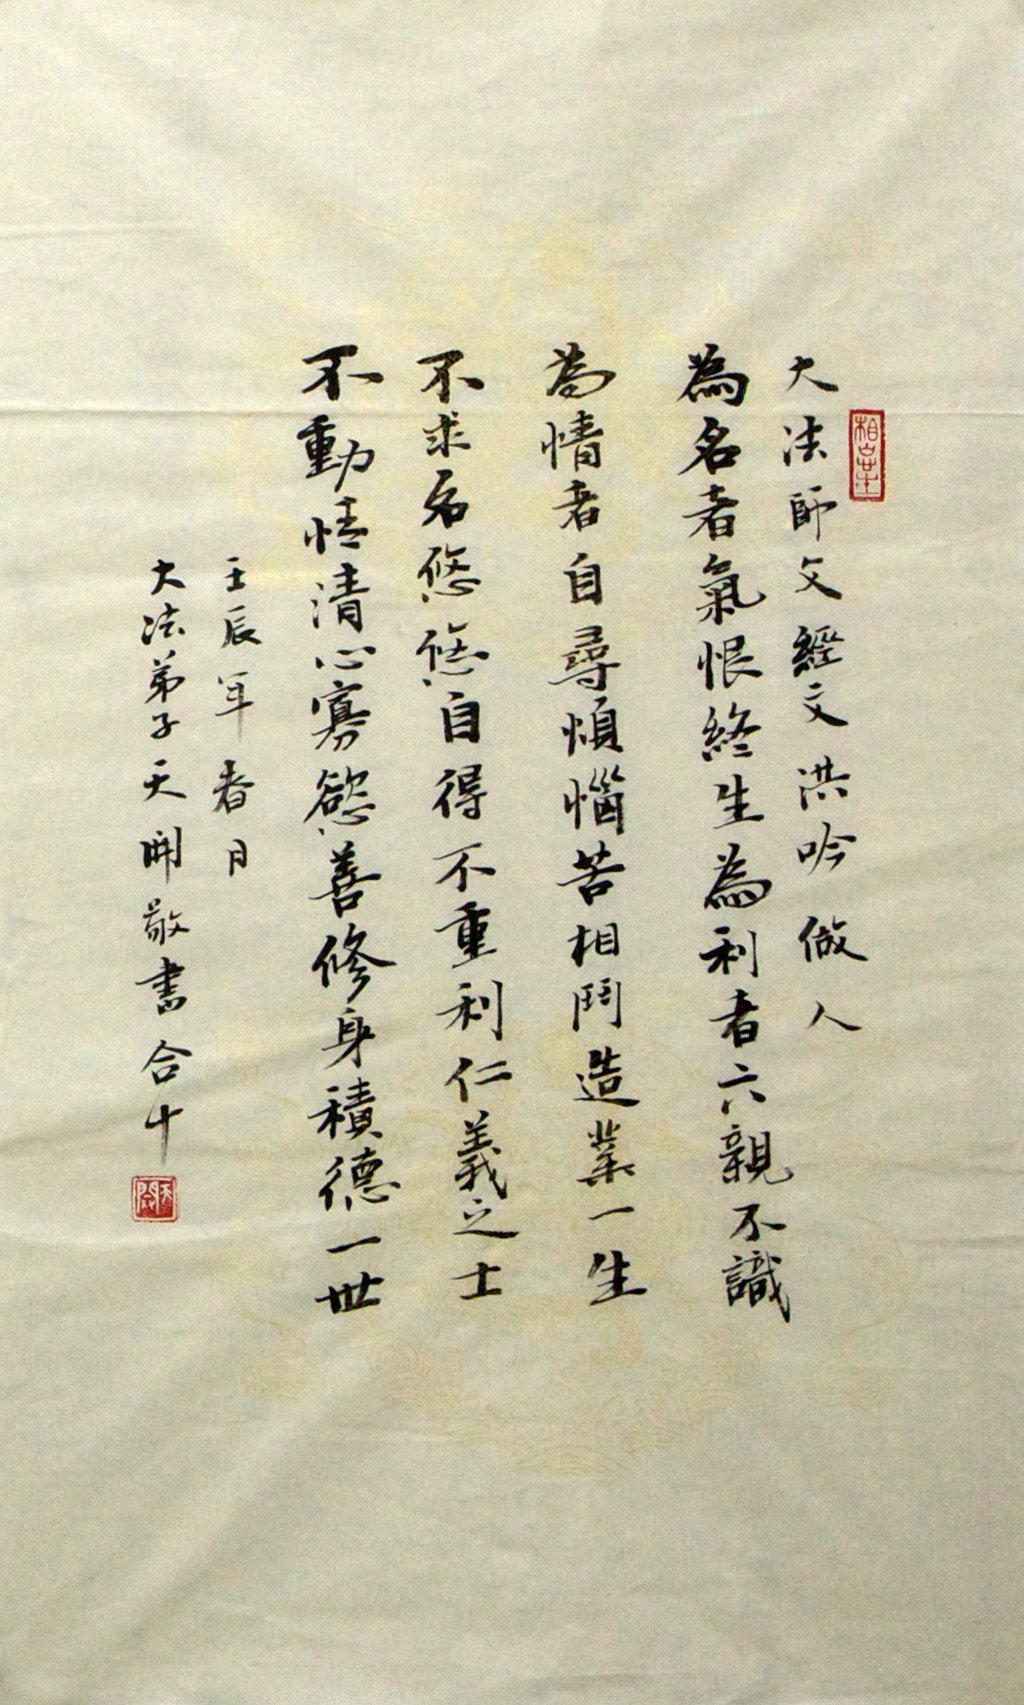 大法師父經文洪吟 做人
為名者氣恨終生為利者六親不識
為情者自尋煩惱苦相鬥造業一生
不求名悠悠自得不重利仁義之士
不動情清心寡慾善修身積德一世
壬辰年春月
大法弟子天開敬書合十